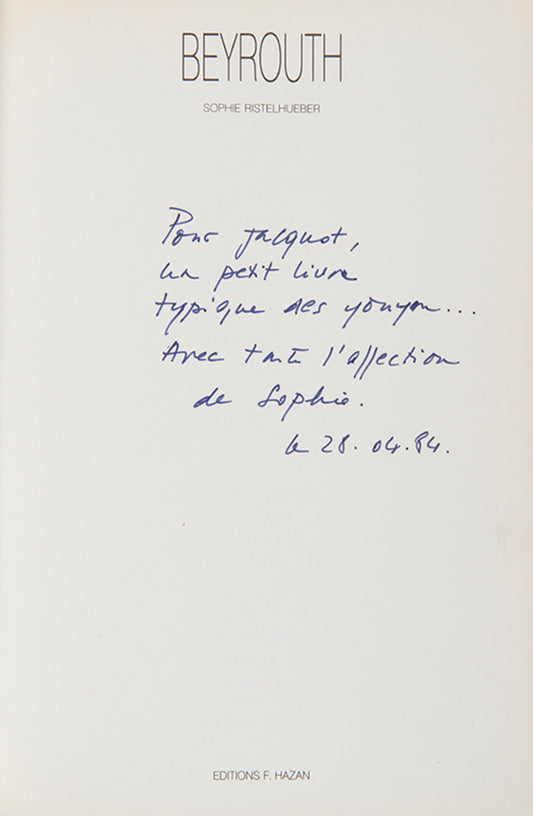 BEYROUTH
SOPHIE RISTELHUEBER
Pour Jacquot,
un petit livre
typique des youyou...
Avec toute l'affection
de Sophie.
le 28.04.84.
EDITIONS F. HAZAN